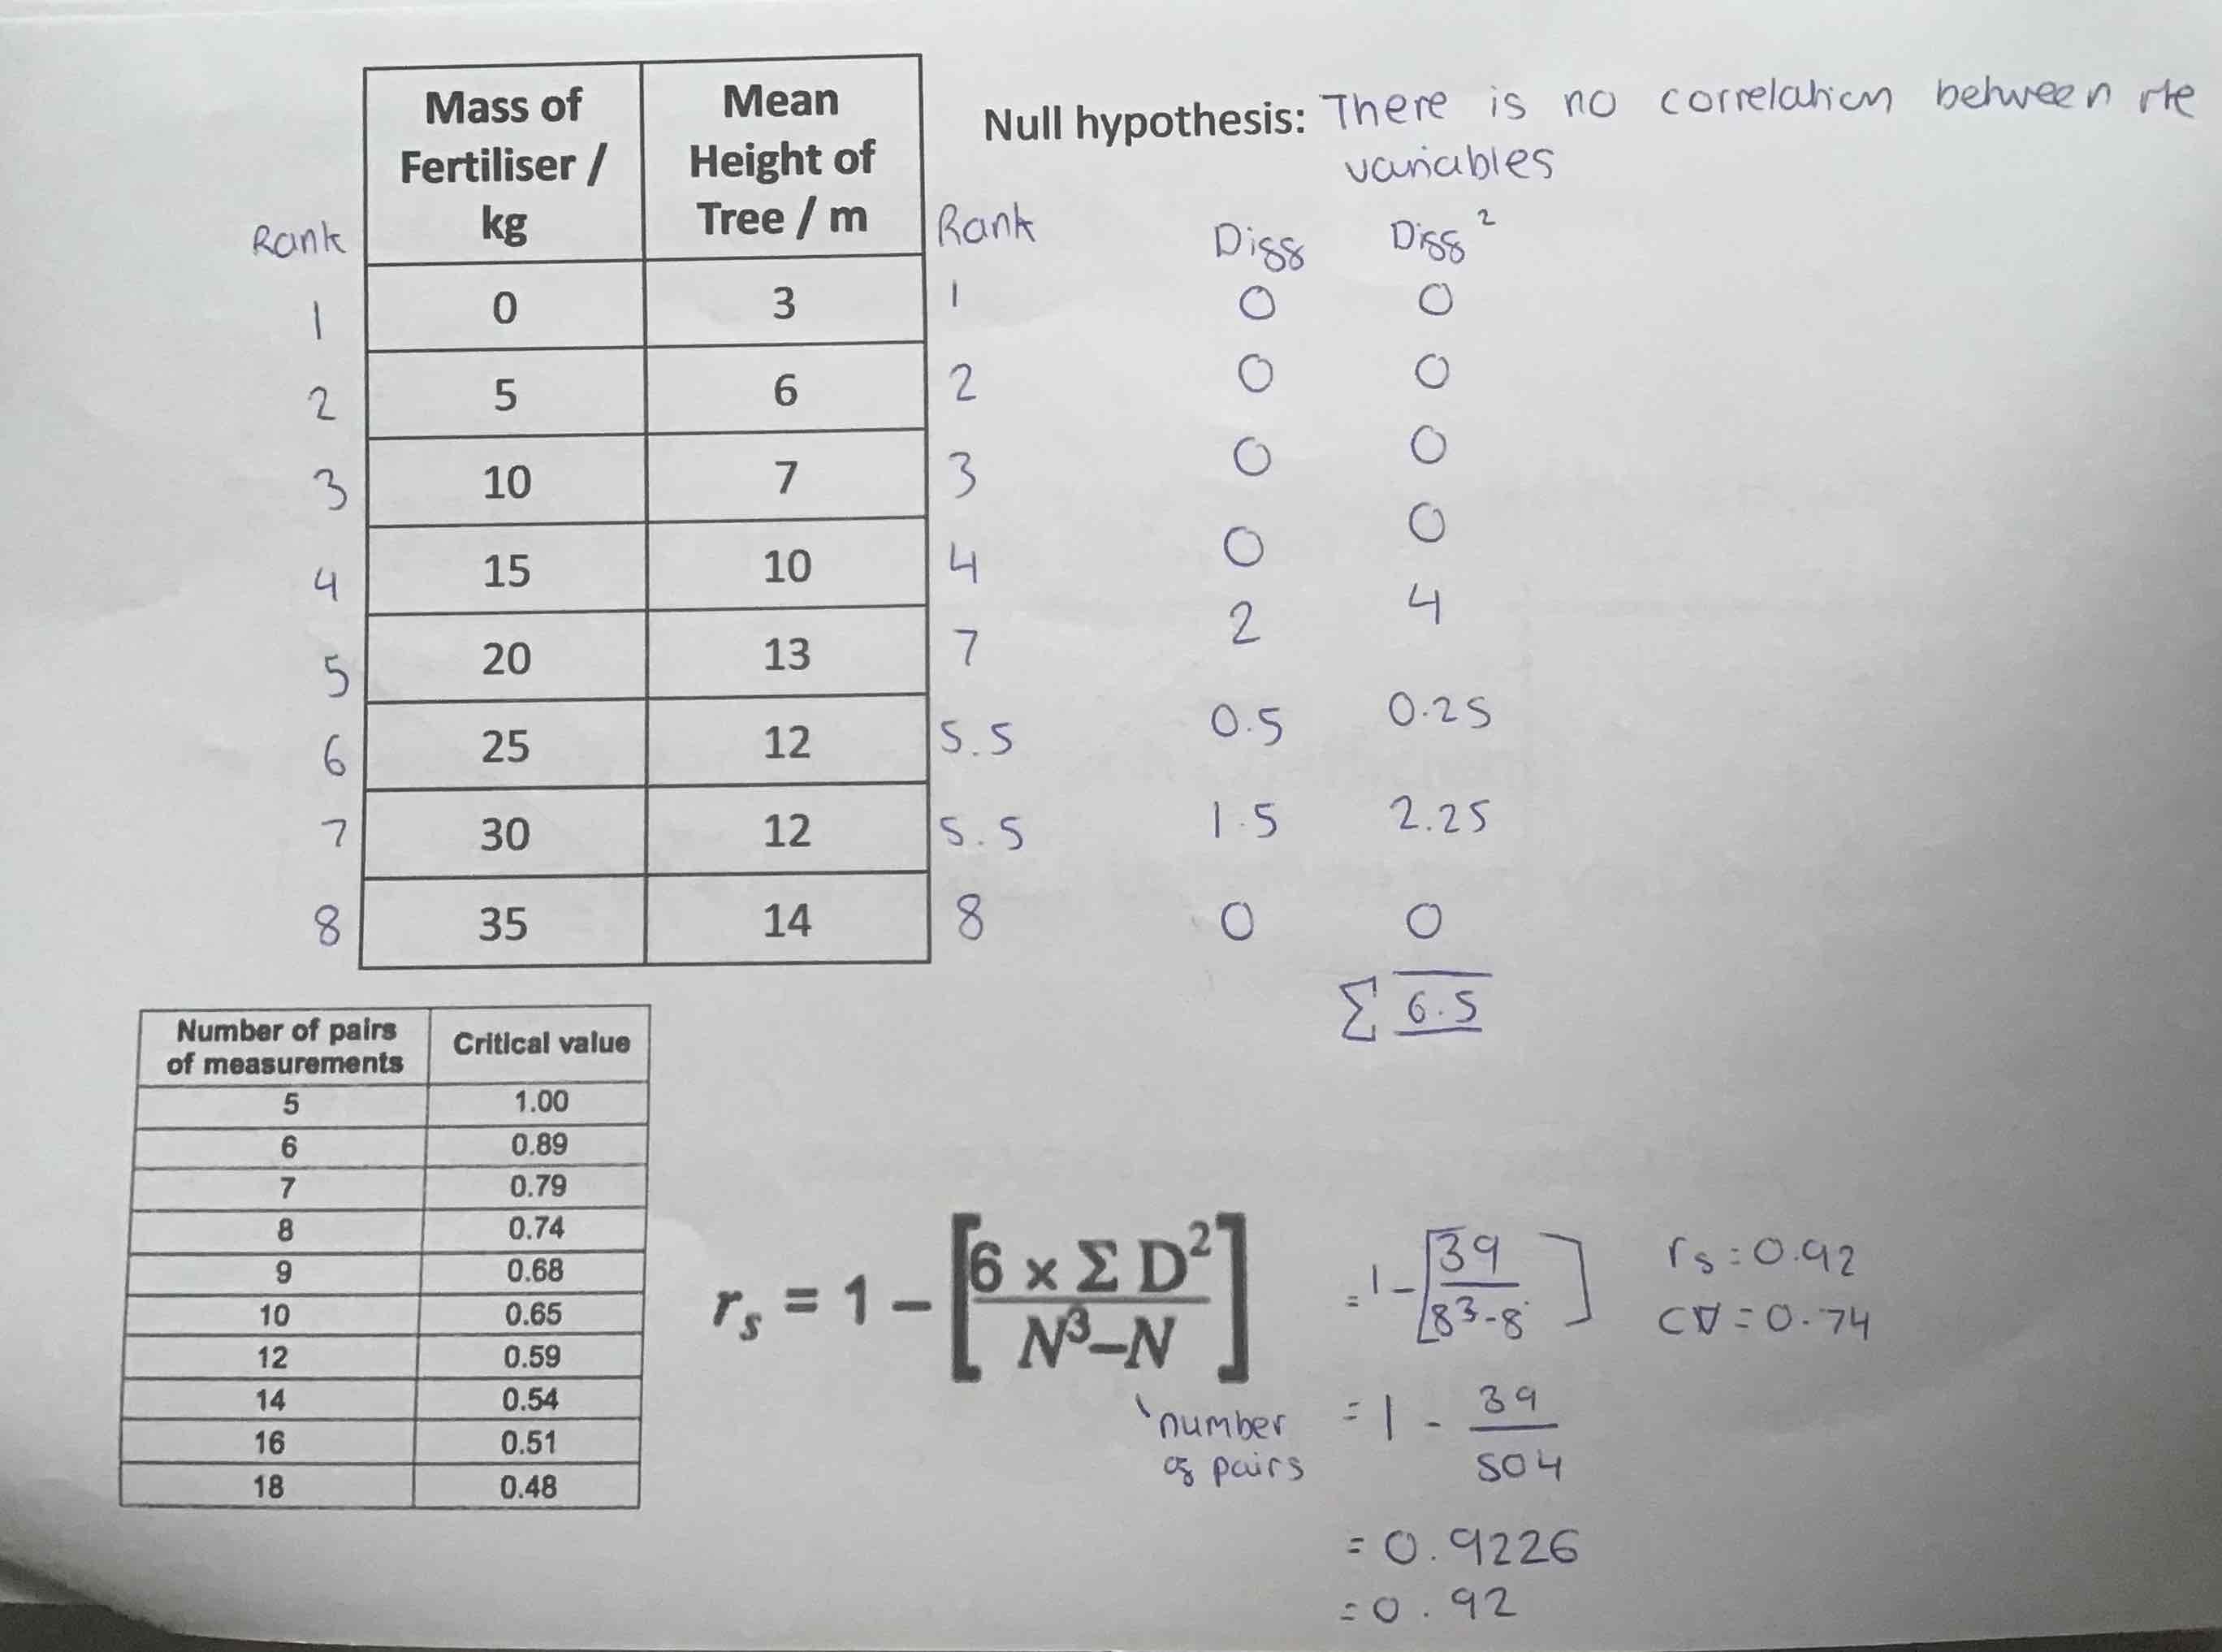 Null hypothesis: There is no correlation between the
variables
Rank Mass of Fertiliser / kg Mean Height of Tree / m Rank Diff Diff²
1 0 3 1 0 0
2 5 6 2 0 0
3 10 7 3 0 0
4 15 10 4 0 0
5 20 13 7 2 4
6 25 12 5.5 0.5 0.25
7 30 12 5.5 1.5 2.25
8 35 14 8 0 0
Σ 6.5
Number of pairs of measurements Critical value
5 1.00
6 0.89
7 0.79
8 0.74
9 0.68
10 0.65
12 0.59
14 0.54
16 0.51
18 0.48
rₛ = 1 – [6 × Σ D² / N³–N]
number
of pairs
= 1 - [39 / 8³-8]
= 1 - 39 / 504
= 0.9226
= 0.92
rs = 0.92
CV = 0.74